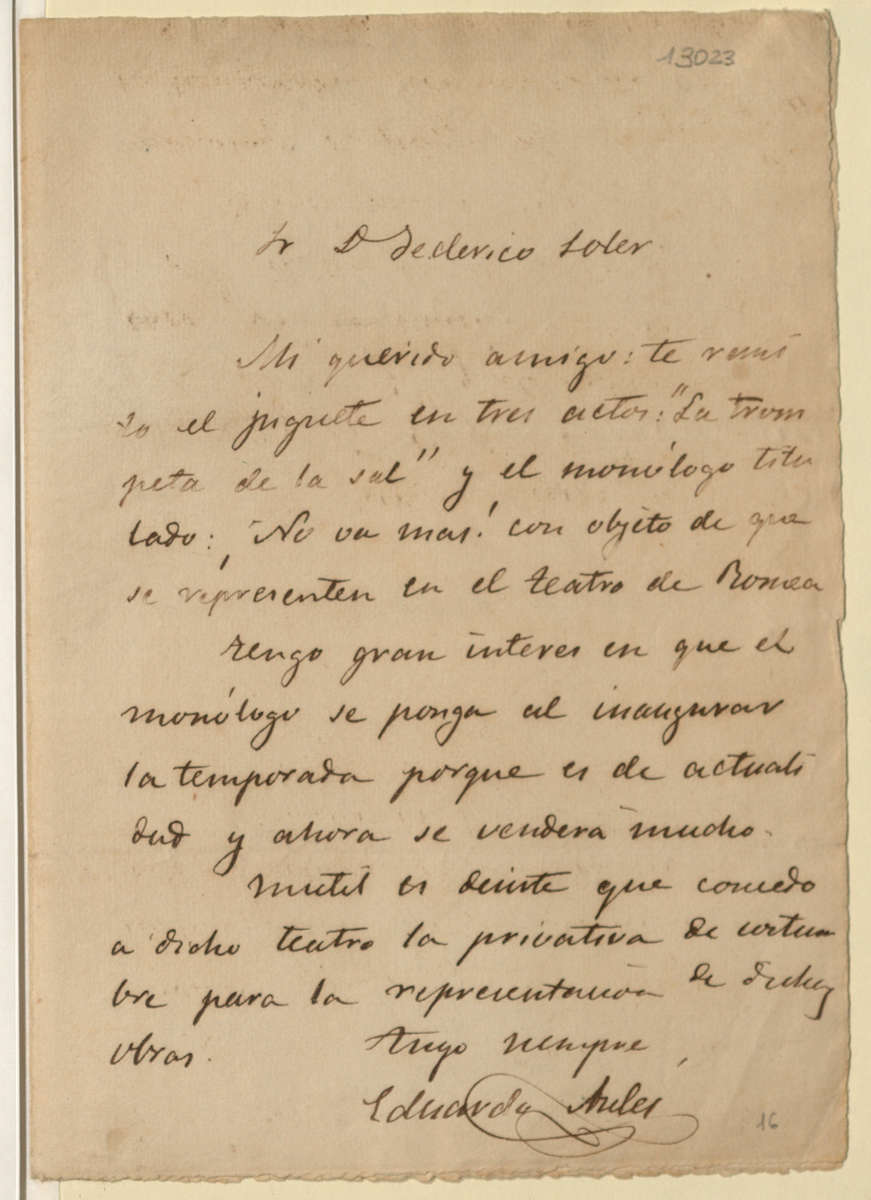 13023
Sr D. Federico Soler
Mi querido amigo: te remi
to el juguete en tres actos: "La trom
peta de la sal" y el monólogo titu
lado: ¡No va mas! con objeto de que
se representen en el teatro de Romea
Tengo gran interes en que el
monólogo se ponga al inaugurar
la temporada porque es de actuali
dad y ahora se venderá mucho.
Inutil es decirte que concedo
a dicho teatro la privativa de costum
bre para la representación de dichas
obras.
Tuyo siempre
Eduardo Aulés
16